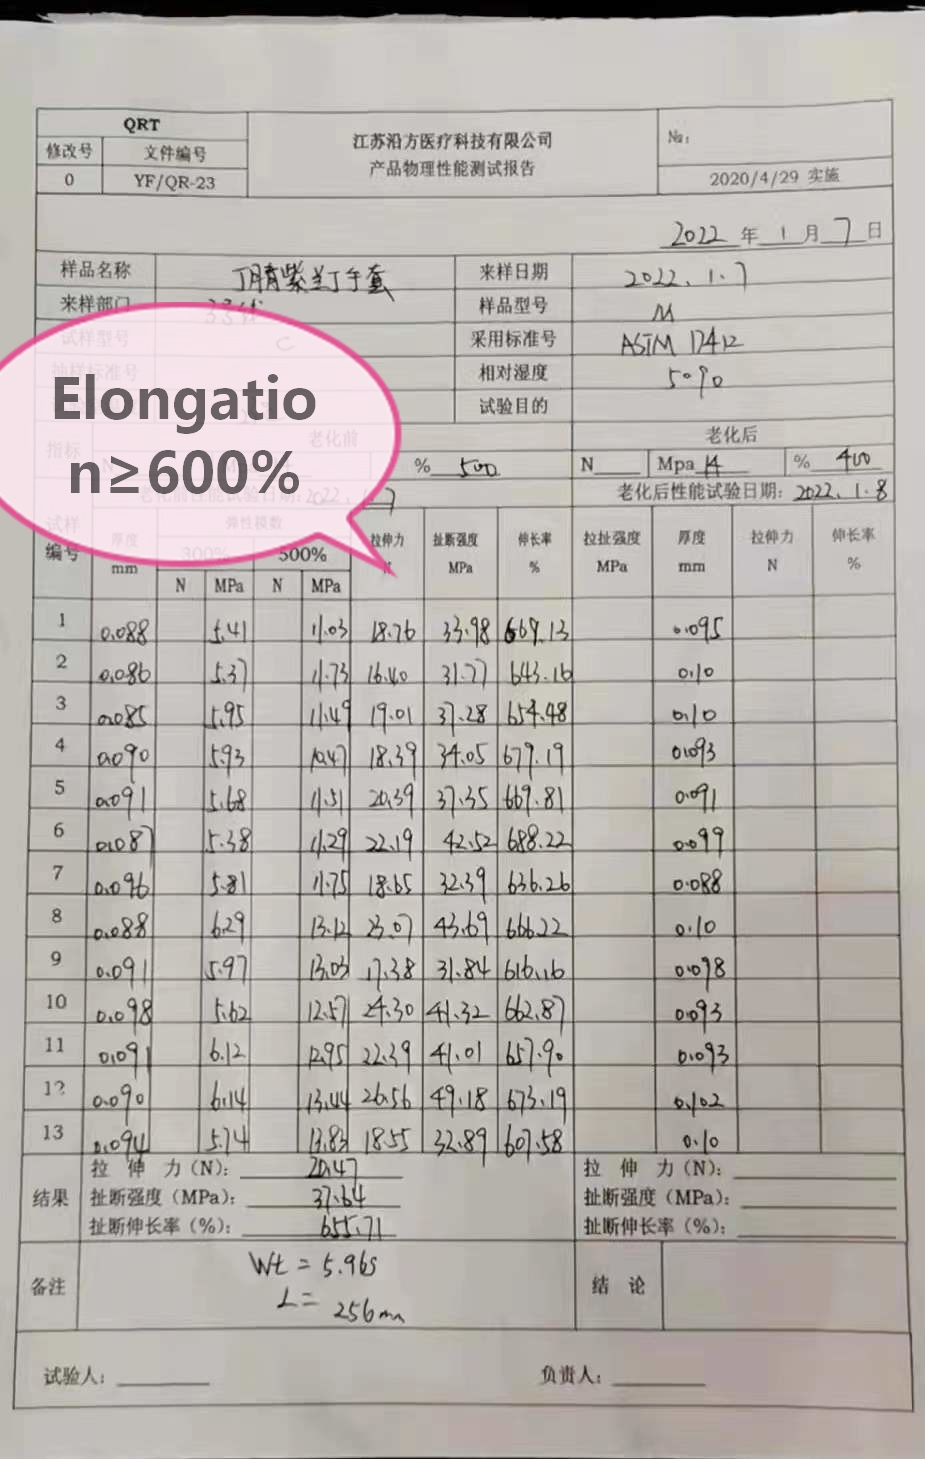 QRT
修改号 文件编号
0 YF/QR-23
江苏沿方医疗科技有限公司
产品物理性能测试报告
№:
2020/4/29 实施
2022 年 1 月 7 日
样品名称 丁腈紫兰丁手套 来样日期 2022.1.7
来样部门 样品型号 M
试样型号 C 采用标准号 ASTM
抽样标准号 相对湿度
试验目的
Elongatio
n≥600%
指标 老化前 老化后
% 500 N Mpa 14 % 400
老化前性能试验日期: 2022. 7 老化后性能试验日期: 2022.1.8
试样
编号
厚度
mm
弹性模数
300% 500%
N MPa N MPa
拉伸力
N
扯断强度
MPa
伸长率
%
拉扯强度
MPa
厚度
mm
拉伸力
N
伸长率
%
1 0.088 5.41 11.03 18.76 33.98 669.13 0.095
2 0.086 5.37 11.73 16.40 31.77 643.16 0.10
3 0.085 5.95 11.49 19.01 37.28 654.48 0.10
4 0.090 5.93 10.47 18.39 34.05 679.19 0.093
5 0.091 5.68 11.51 20.39 37.35 669.81 0.091
6 0.087 5.38 11.29 22.19 42.52 688.22 0.099
7 0.096 5.81 11.75 18.65 32.39 636.26 0.088
8 0.088 6.29 13.12 23.07 43.69 666.22 0.10
9 0.091 5.97 13.03 17.38 31.84 616.16 0.098
10 0.098 5.62 12.57 24.30 41.32 662.87 0.093
11 0.091 6.12 12.95 22.39 41.01 657.90 0.093
12 0.090 6.14 13.44 26.56 49.18 673.19 0.102
13 0.094 5.74 13.83 18.55 32.89 607.58 0.10
结果
拉 伸 力(N): 20.47 拉 伸 力(N):
扯断强度(MPa): 37.64 扯断强度(MPa):
扯断伸长率(%): 655.71 扯断伸长率(%):
备注 Wt = 5.96g 结 论
L = 256mm
试验人: 负责人: